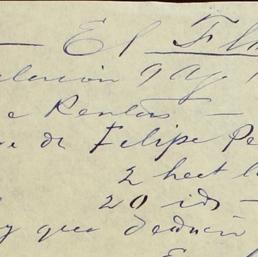 — El Fl
lacion 9 Ag
e Rentas —
de Felipe Pe
2 hect
20 ids —
y que deducir